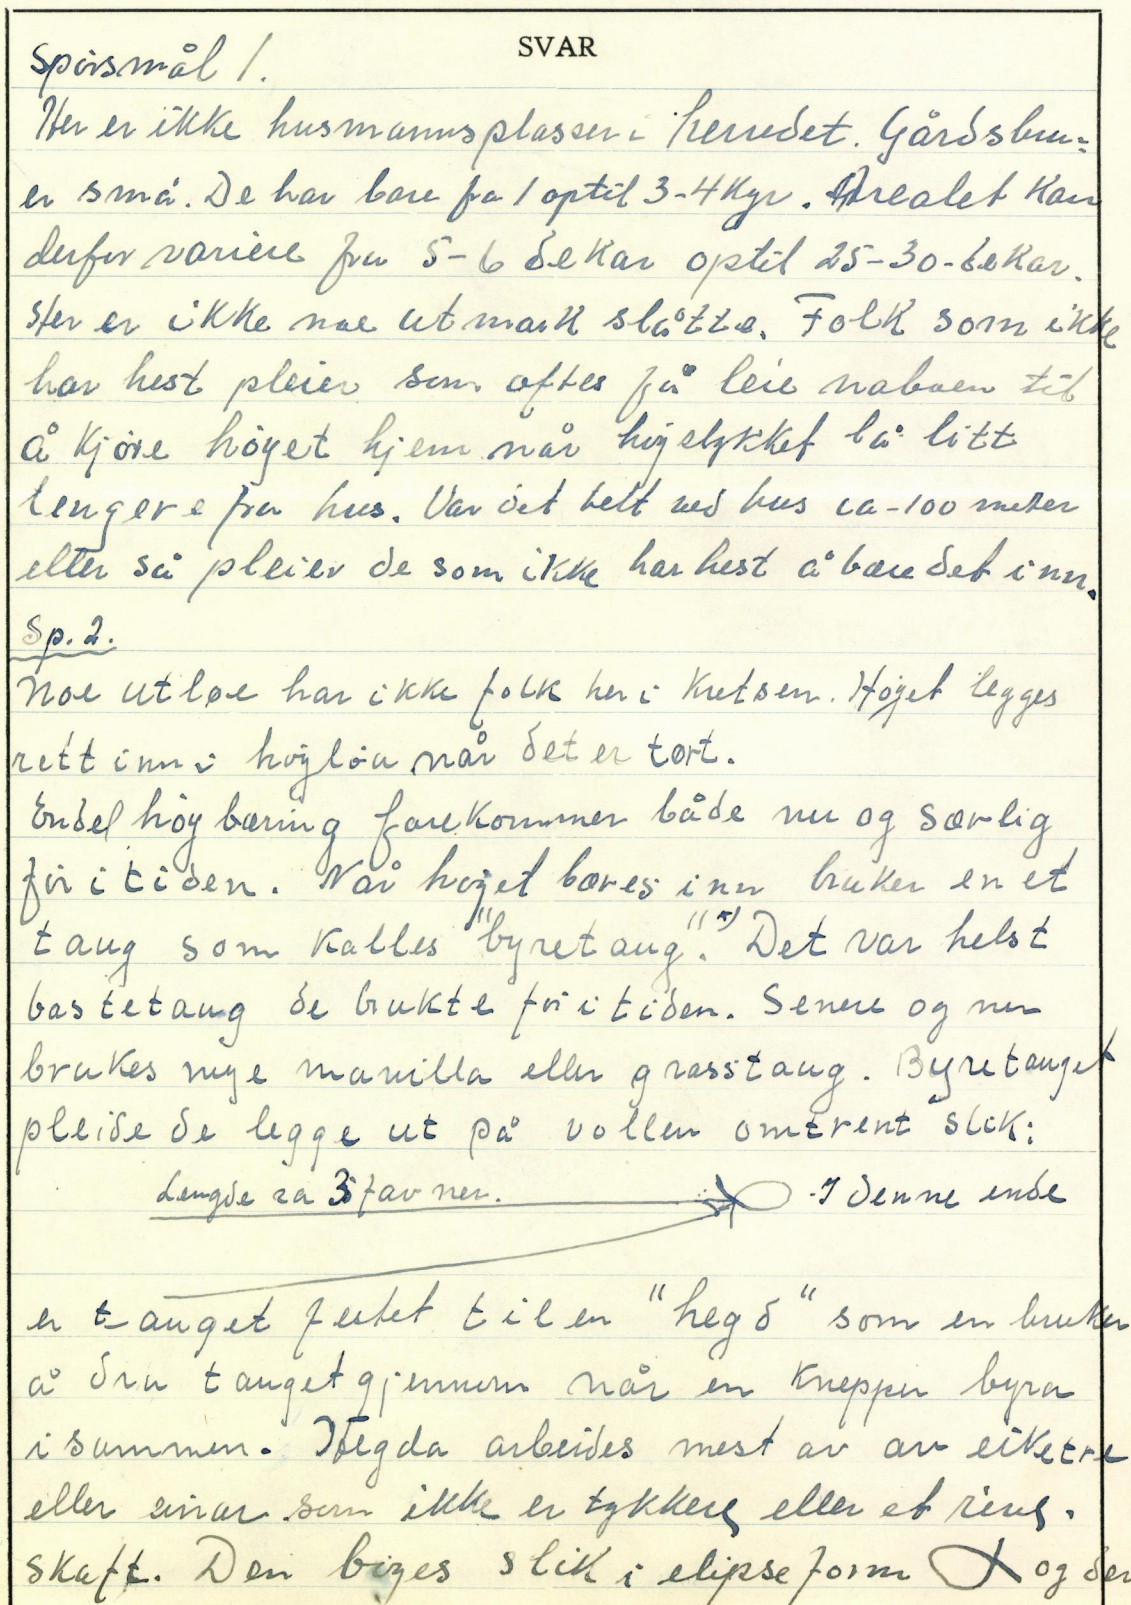 SVAR
Spörsmål 1.
Her er ikke husmannsplasser i herredet. Gårdsbru=
er små. De har bare fra 1 optil 3-4 Kyr. Arealet kan
derfor variere fra 5-6 dekar optil 25-30-dekar.
Her er ikke noe utmark slåtte. Folk som ikke
har hest pleier som oftes få leie naboen til
å kjöre höyet hjem når höystykket lå litt
lengere fra hus. Var det helt ved hus ca-100 meter
eller så pleier de som ikke har hest å bære det inn.
Sp. 2.
Noe utløe har ikke folk her i kretsen. Höyet legges
rett inn i höylöa når det er tørt.
Endel höybæring forekommer både nu og særlig
för i tiden. Når höyet bæres inn bruker en et
taug som kalles "byretaug". x) Det var helst
bastetaug de brukte för i tiden. Senere og nu
brukes mye manilla eller grasstaug. Byretauget
pleide de legge ut på vollen omtrent slik:
Lengde ca 3 favner. - I denne ende
er tauget festet til en "hegd" som en bruker
å dra tauget gjennem når en knepper byra
i sammen. Hegda arbeides mest av av eiketre
eller einar som ikke er tykkere eller et rive-
skaft. Den böyes slik i elipseform og der